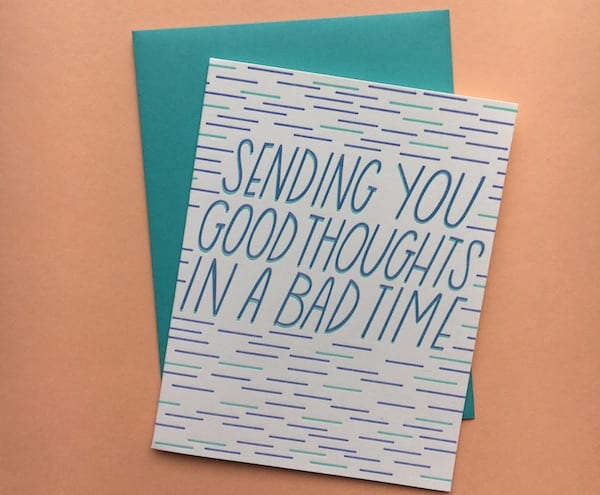 SENDING YOU
GOOD THOUGHTS
IN A BAD TIME